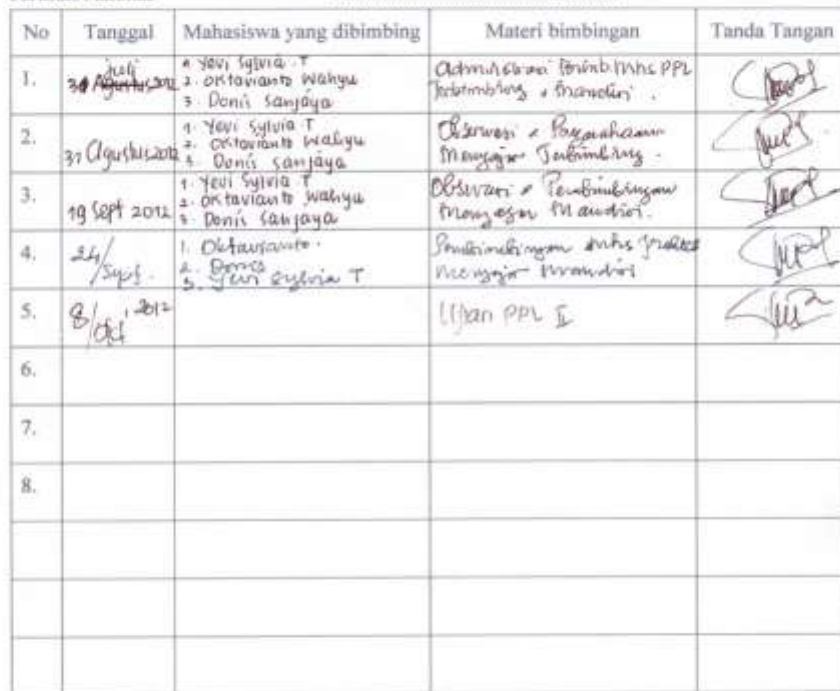 No Tanggal Mahasiswa yang dibimbing Materi bimbingan Tanda Tangan
1. 31 Agustus 2012 juli
1. Yevi Sylvia T
2. Oktavianto Wahyu
3. Donis Sanjaya
Administrasi Bimb. Mhs PPL
Terbimbing & Mandiri.
2. 31 Agustus 2012
1. Yevi Sylvia T
2. Oktavianto Wahyu
3. Donis Sanjaya
Observasi &
Mengajar Terbimbing.
3. 19 Sept 2012
1. Yevi Sylvia T
2. Oktavianto Wahyu
3. Donis Sanjaya
Observasi & Pembimbingan
Mengajar Mandiri.
4. 24/Sept.
1. Oktavianto.
2. Donis
3. Yevi Sylvia T
Pembimbingan mhs praktek
mengajar mandiri
5. 8/Okt' 2012
Ujian PPL II
6.
7.
8.